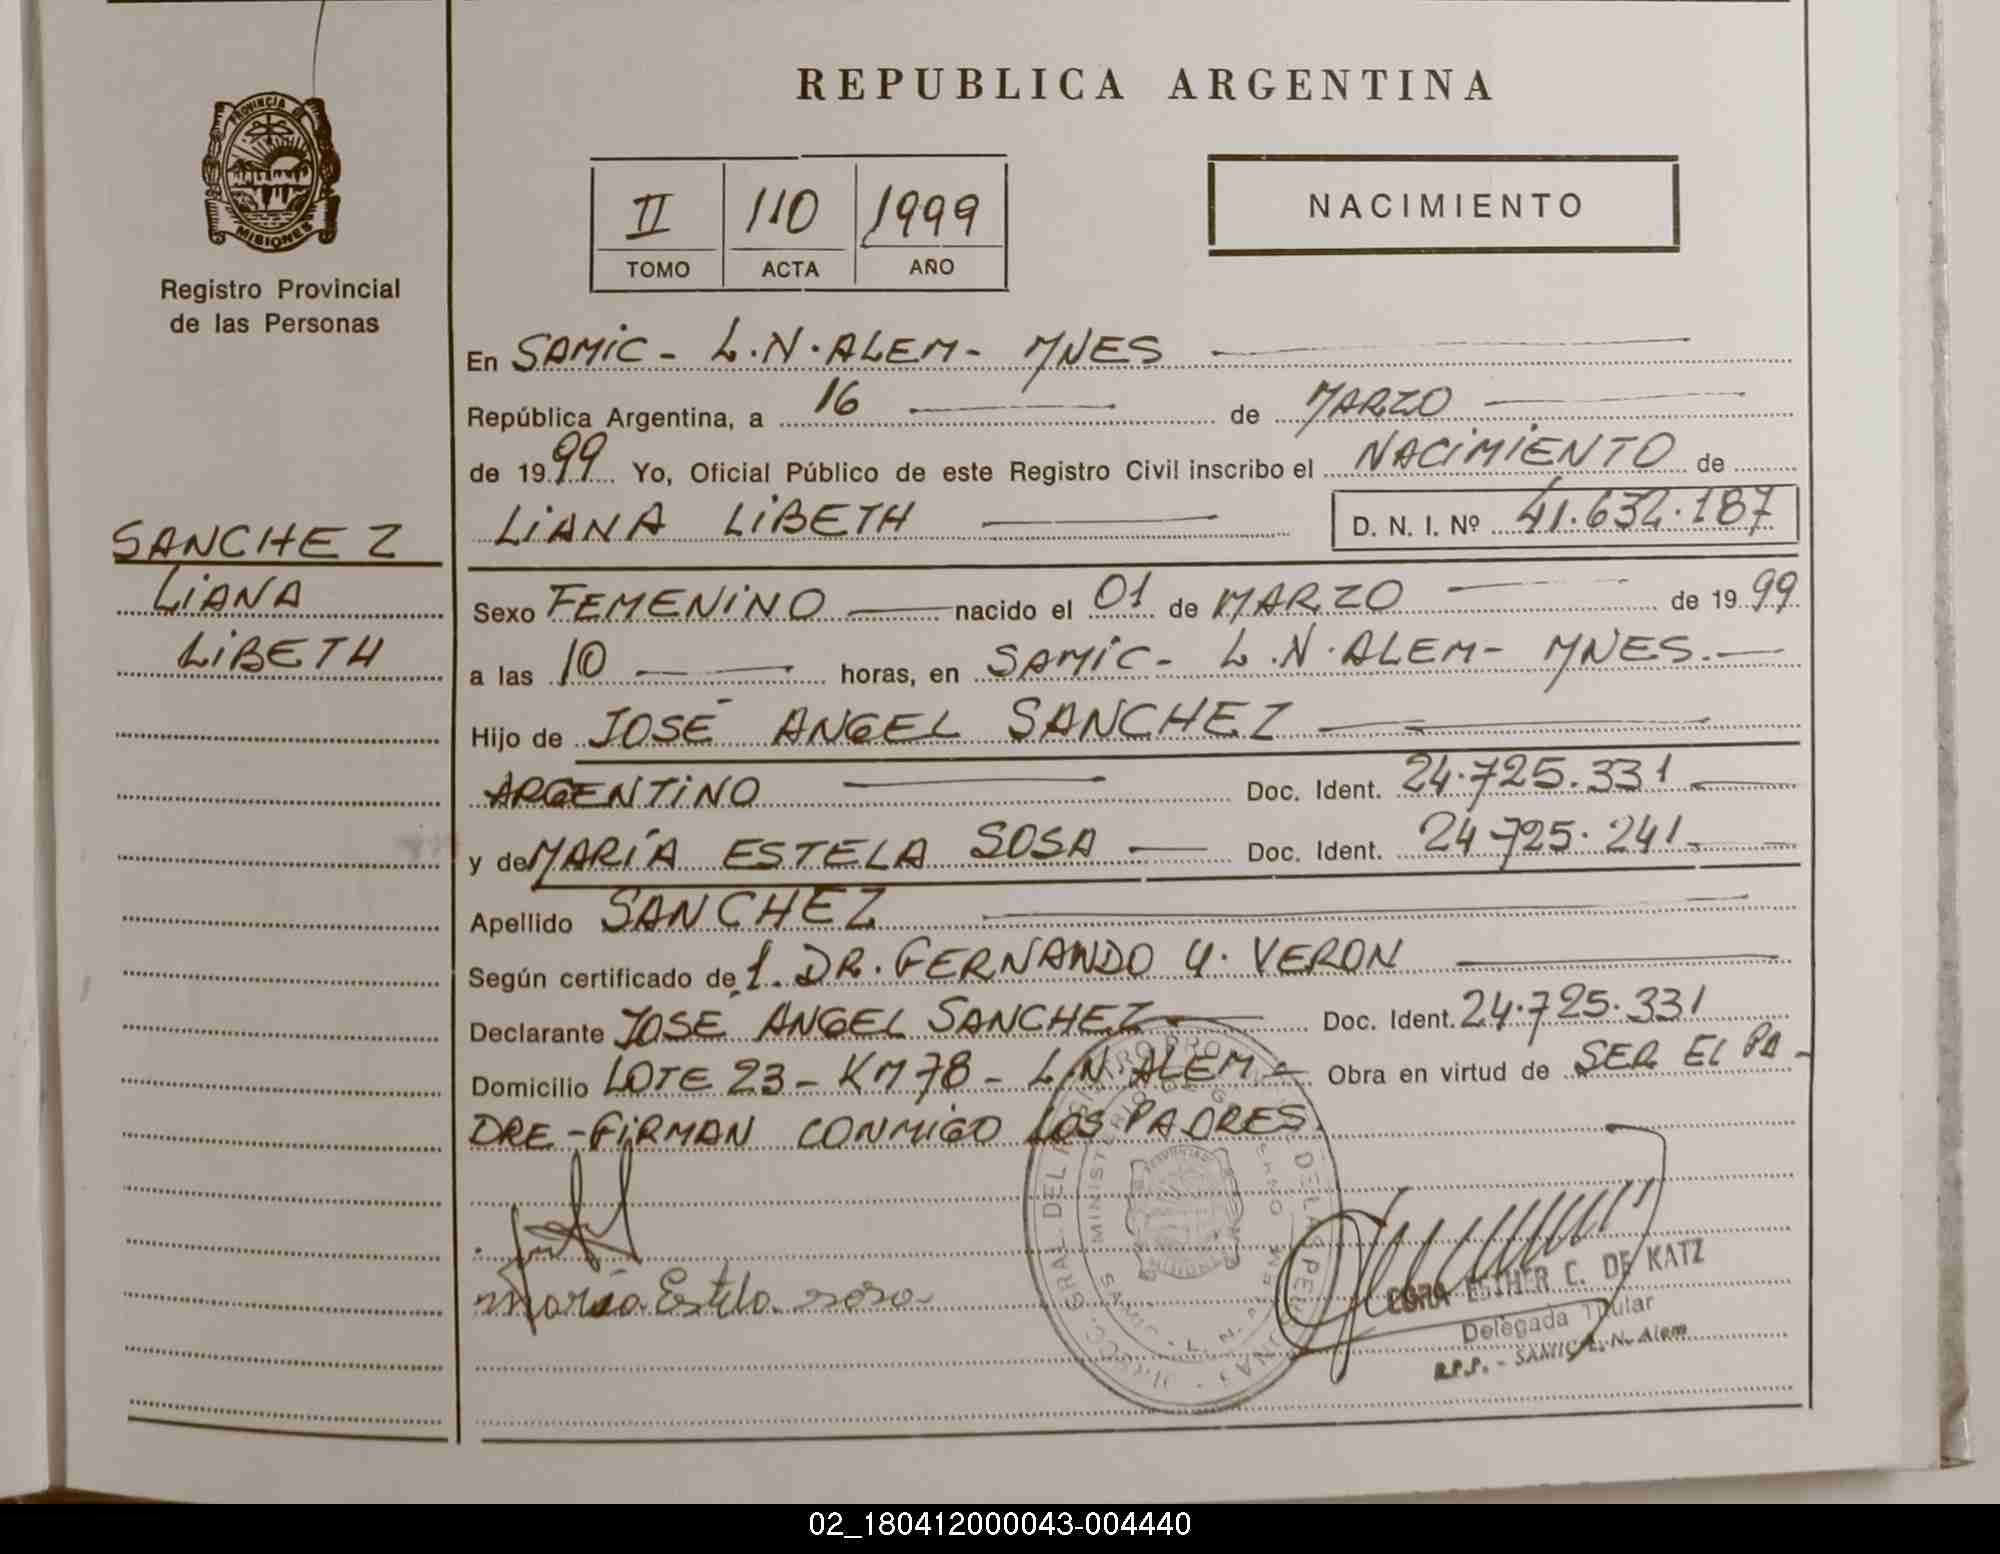 REPUBLICA ARGENTINA
PROVINCIA DE
MISIONES
Registro Provincial
de las Personas
II 110 1999
TOMO ACTA AÑO
NACIMIENTO
En SAMIC - L.N.ALEM - MNES
República Argentina, a 16 de MARZO
de 1999 Yo, Oficial Público de este Registro Civil inscribo el NACIMIENTO de
LIANA LIBETH D. N. I. Nº 41.632.187
SANCHEZ
LIANA
LIBETH
Sexo FEMENINO nacido el 01 de MARZO de 1999
a las 10 horas, en SAMIC - L.N.ALEM - MNES.
Hijo de JOSÉ ANGEL SANCHEZ
ARGENTINO Doc. Ident. 24.725.331
y de MARÍA ESTELA SOSA Doc. Ident. 24.725.241
Apellido SANCHEZ
Según certificado de 1. DR. FERNANDO VERON
Declarante JOSÉ ANGEL SANCHEZ Doc. Ident. 24.725.331
Domicilio LOTE 23 - KM 78 - L.N. ALEM - Obra en virtud de SER EL PA-
DRE - FIRMAN CONMIGO LOS PADRES.
María Estela sosa
ESTHER C. DE KATZ
Delegada Titular
R.P.P. - SAMIC L. N. Alem
02_180412000043-004440